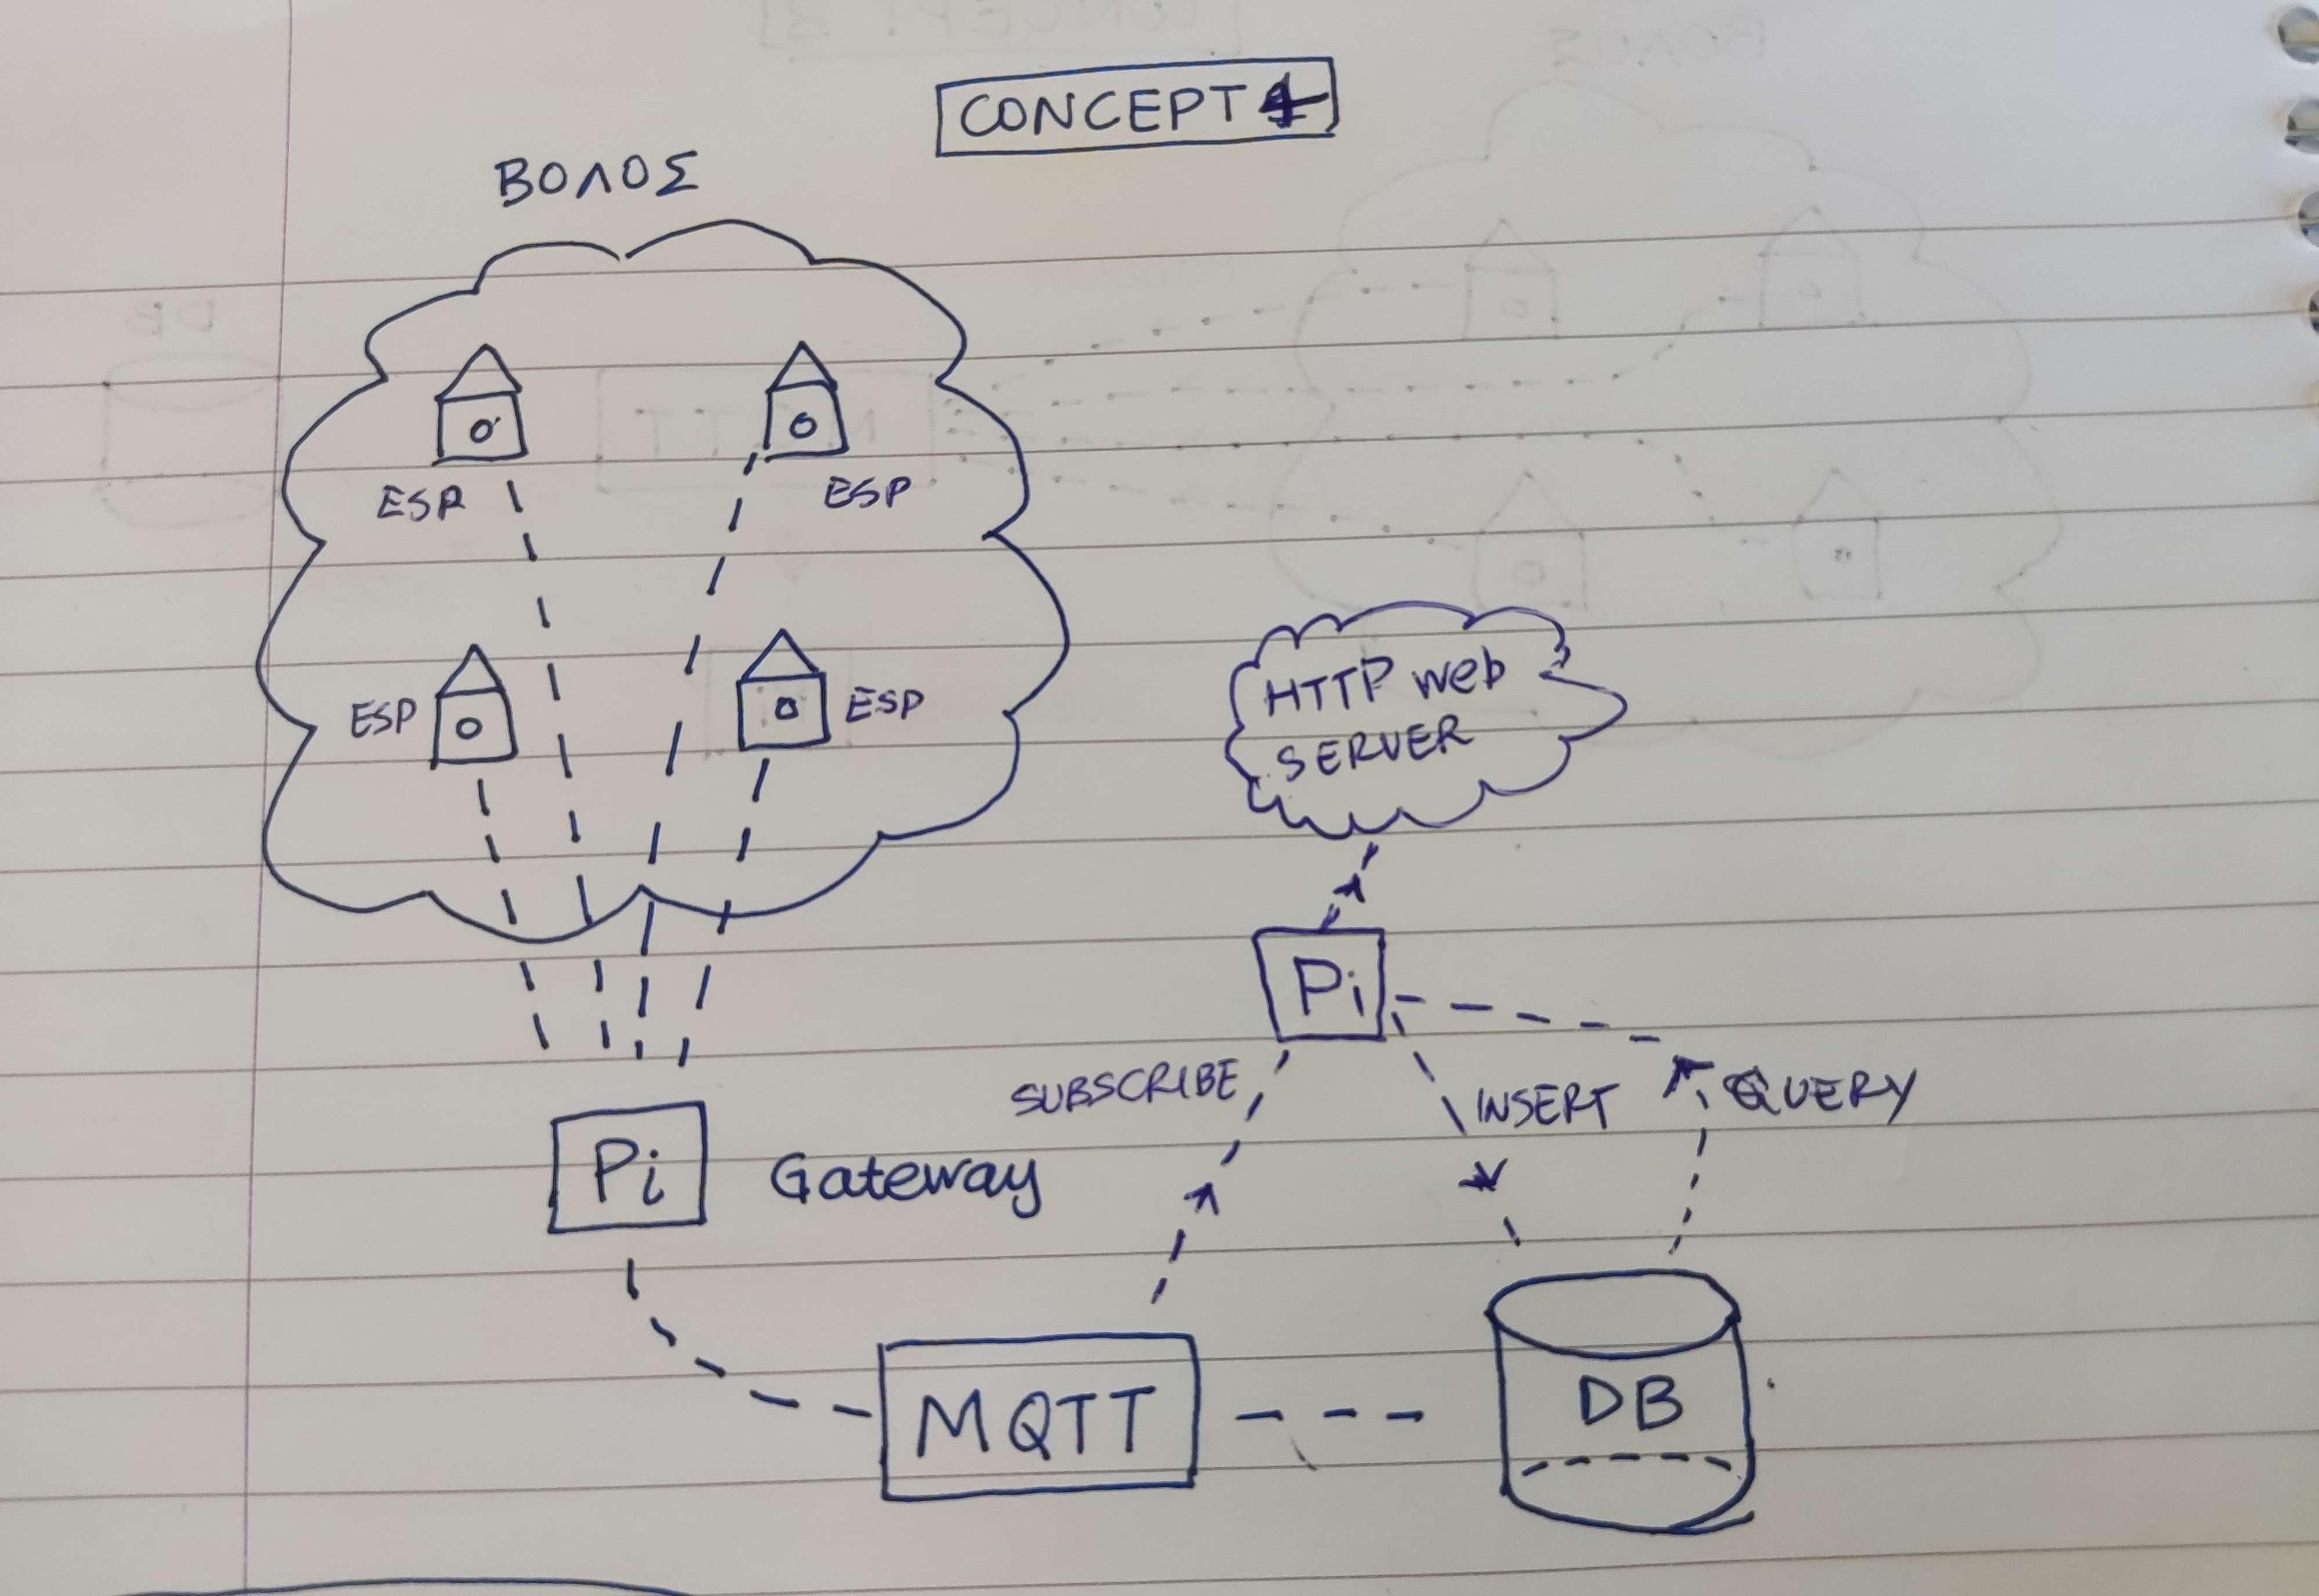 CONCEPT 1
ΒΟΛΟΣ
ESP
ESP
ESP
ESP
HTTP web
SERVER
Pi
SUBSCRIBE
INSERT
QUERY
Pi
Gateway
MQTT
DB